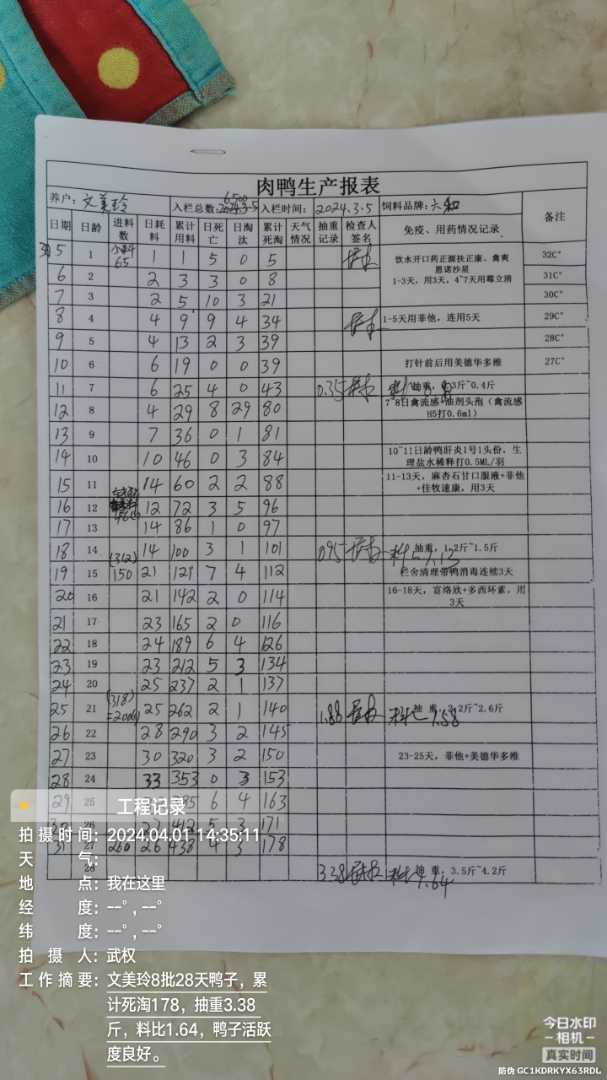 肉鸭生产报表
养户: 文美玲 入栏总数: 6500 2024.3.5 入栏时间: 2024.3.5 饲料品牌: 六和
日期 日龄 进料数 日耗料 累计用料 日死亡 日淘汰 累计死淘 天气情况 抽重记录 检查人签名 免疫、用药情况记录 备注
5 1 65 1 1 5 0 5 饮水开口药正源扶正康、禽爽 恩诺沙星 32C°
6 2 2 3 3 0 8 1-3天，用3天，4~7天用霉立消 31C°
7 3 2 5 10 3 21 30C°
8 4 4 9 9 4 34 1-5天用菲他，连用5天 29C°
9 5 4 13 2 3 39 28C°
10 6 6 19 0 0 39 打针前后用美德华多维 27C°
11 7 6 25 4 0 43 0.35 抽重，0.3斤~0.4斤
12 8 4 29 8 29 80 7~8日禽流感+油剂头孢（禽流感H5打0.6ml）
13 9 7 36 0 1 81
14 10 10 46 0 3 84 10~11日龄鸭肝炎1号1头份，生理盐水稀释打0.5ML/羽
15 11 14 60 2 2 88 11-13天，麻杏石甘口服液+菲他+佳牧速康，用3天
16 12 12 72 3 5 96
17 13 14 86 1 0 97
18 14 (312) 14 100 3 1 101 0.95 抽重，1.2斤~1.5斤 1.13
19 15 150 21 121 7 4 112 栏舍清理带鸭消毒连续3天
20 16 21 142 2 0 114 16-18天，富络欣+多西环素，用3天
21 17 23 165 2 0 116
22 18 24 189 6 4 126
23 19 23 212 5 3 134
24 20 25 237 2 1 137
25 21 (318) 25 262 2 1 140 1.88 抽重，2.2斤~2.6斤 1.58
26 22 28 290 3 2 145
27 23 30 320 3 2 150 23-25天，菲他+美德华多维
28 24 33 353 0 3 153
29 25 385 6 4 163
30 26 27 412 5 3 171
31 27 260 26 438 4 3 178
28 3.38 抽重，3.5斤~4.2斤 1.64
工程记录
拍摄时间: 2024.04.01 14:35:11
天气:
地点: 我在这里
经度: --°, --°
纬度: --°, --°
拍摄人: 武权
工作摘要: 文美玲8批28天鸭子，累
计死淘178，抽重3.38
斤，料比1.64，鸭子活跃
度良好。
今日水印
-相机-
真实时间
防伪 GC1KDRKYX63RDL